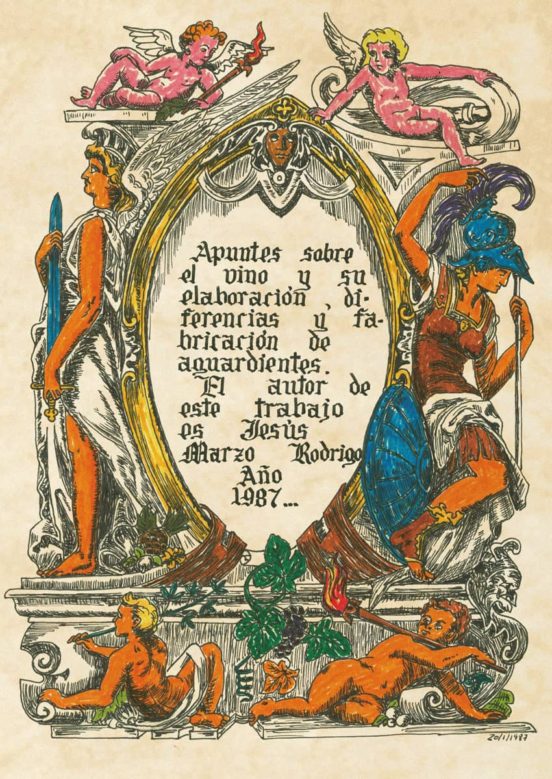 Apuntes sobre
el vino y su
elaboración, di-
ferencias y fa-
bricación de
aguardientes.
El autor de
este trabajo
es Jesús
Marzo Rodrigo
Año
1987...
20/1/1987